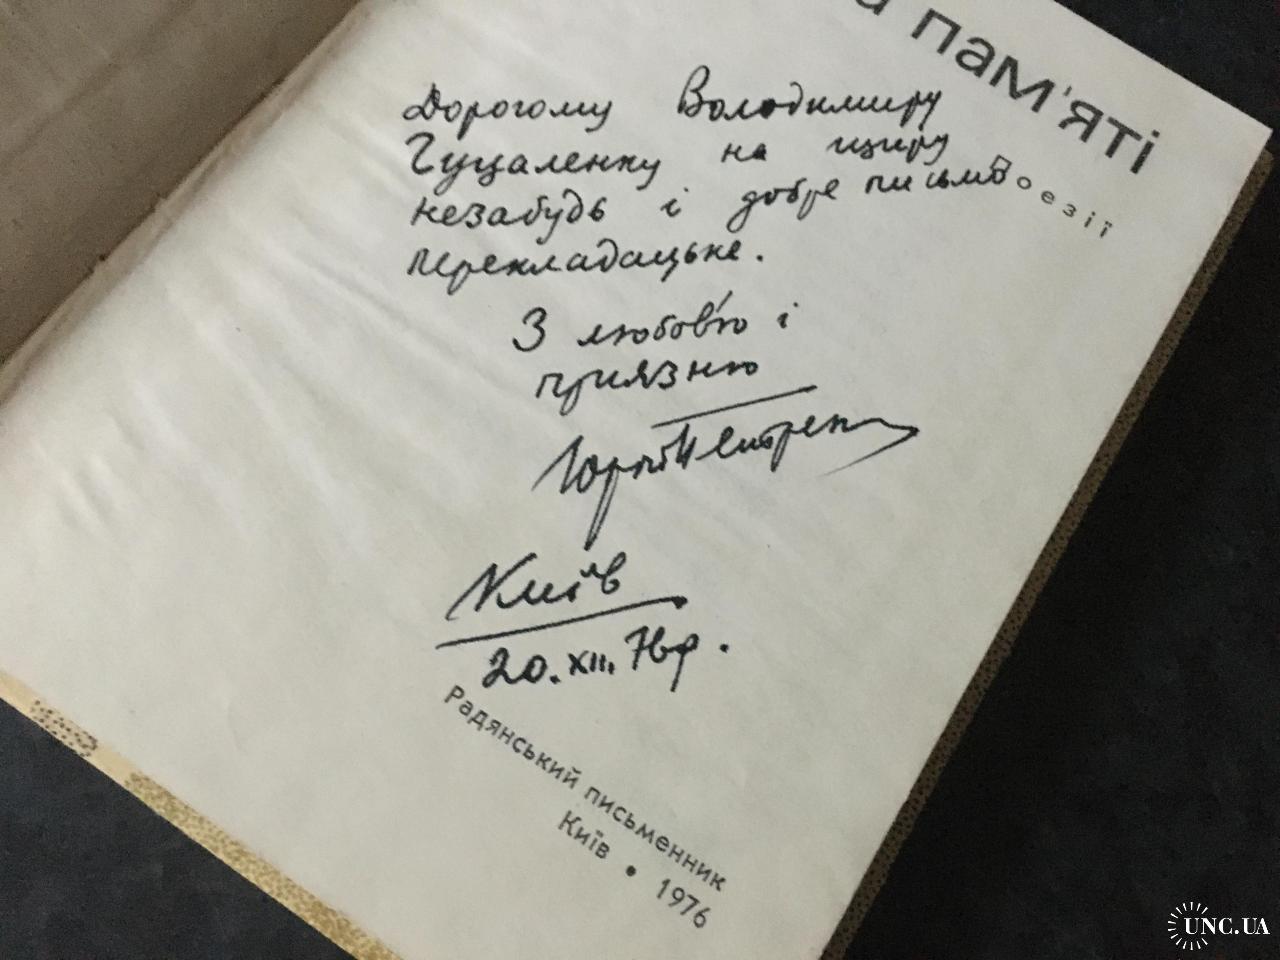 пам'яті
Поезії
Дорогому Володимиру
Гуцаленку на щиру
незабудь і добре письмо
перекладацьке.
З любов'ю і
приязню
Київ
20.XII.76р.
Радянський письменник
Київ • 1976
UNC.UA